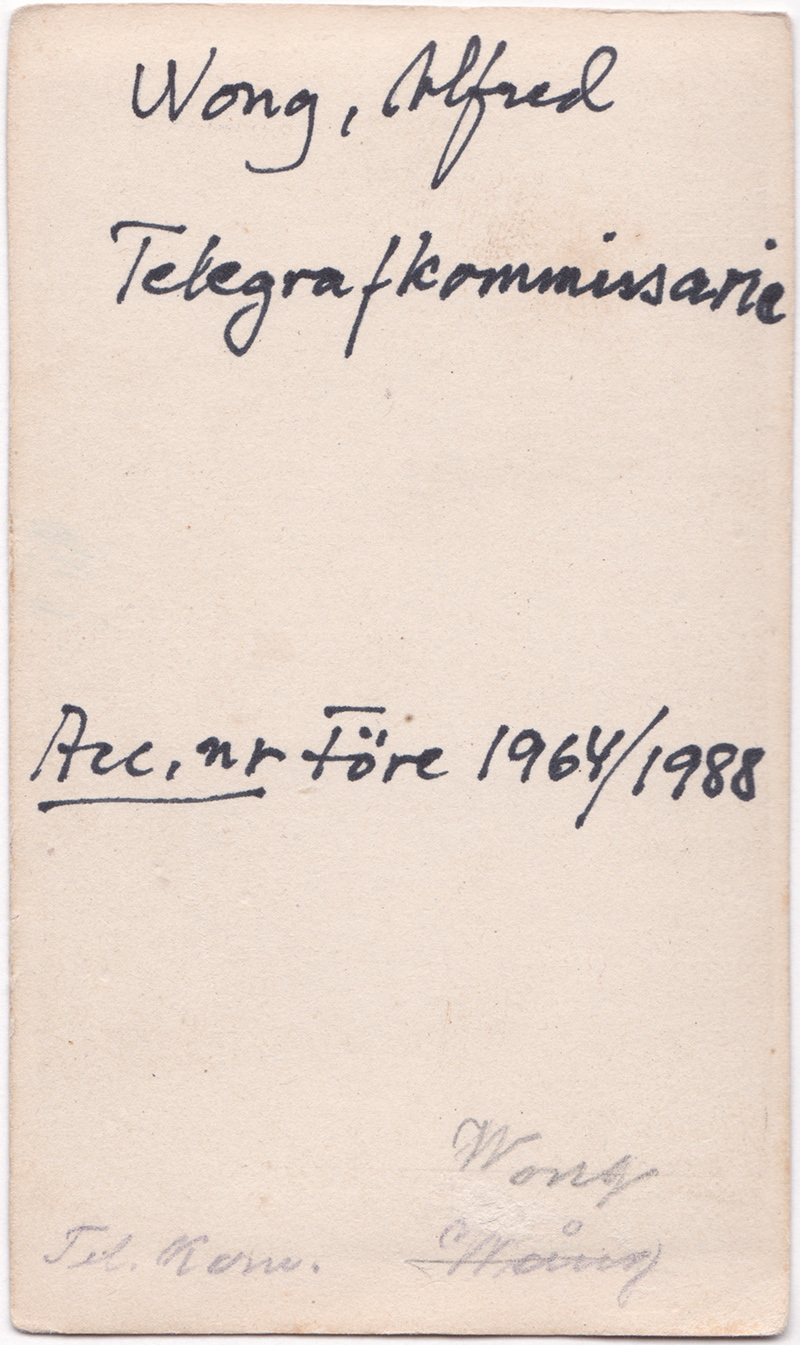 Wong, Alfred
Telegrafkommissarie
Acc.nr Före 1964/1988
Wong
Tel. Kom. Wång